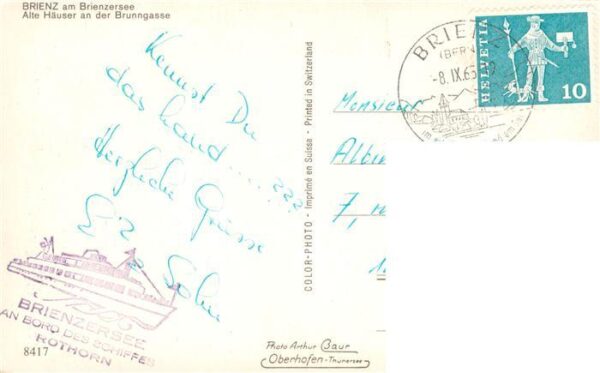 BRIENZ am Brienzersee
Alte Häuser an der Brunngasse
Kennst Du
das Land.....???
Herzliche Grüsse
COLOR-PHOTO - Imprimé en Suisse - Printed in Switzerland
BRIENZ
(BERN)
-8. IX. 65
HELVETIA
10
Monsieur
7, r
BRIENZERSEE
AN BORD DES SCHIFFES
ROTHORN
8417
Photo Arthur Baur
Oberhofen-Thunersee